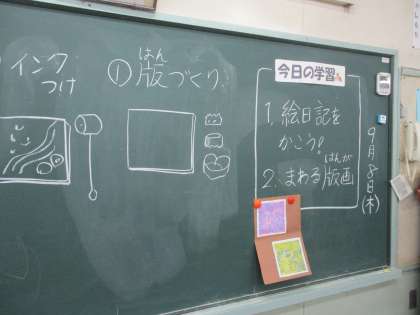 インク
つけ
① 版づくり
はん
今日の学習
1. 絵日記を
かこう!
2. まわる版画
はんが
9月8日(木)